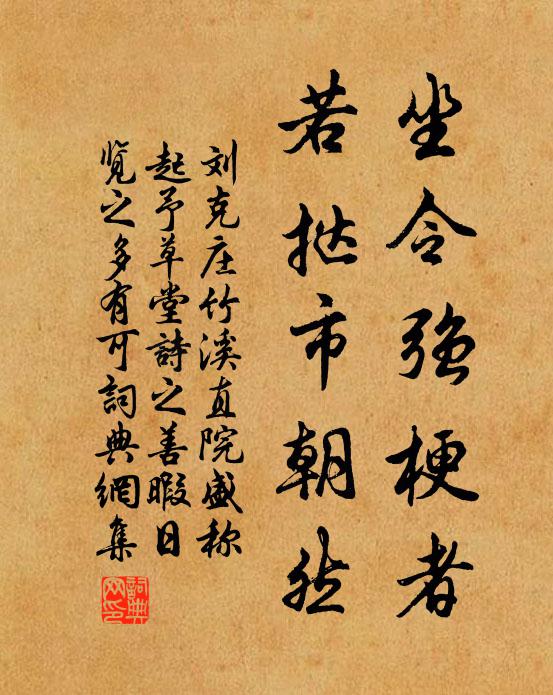 坐令强梗者
若挞市朝然
刘克庄竹溪直院盛称
起予草堂詩之善暇日
览之多有可詞典網集
詞典網印